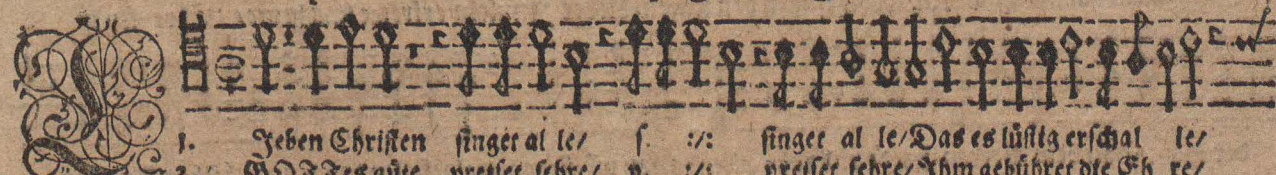 L
1. Jeben Christen singet al le/ s. :/: singet al le/ Das es lüstig erschal le/
2. GOTTes güte preiset sehre/ p. :/: preiset sehre/ Ihm gebühret die Eh re/